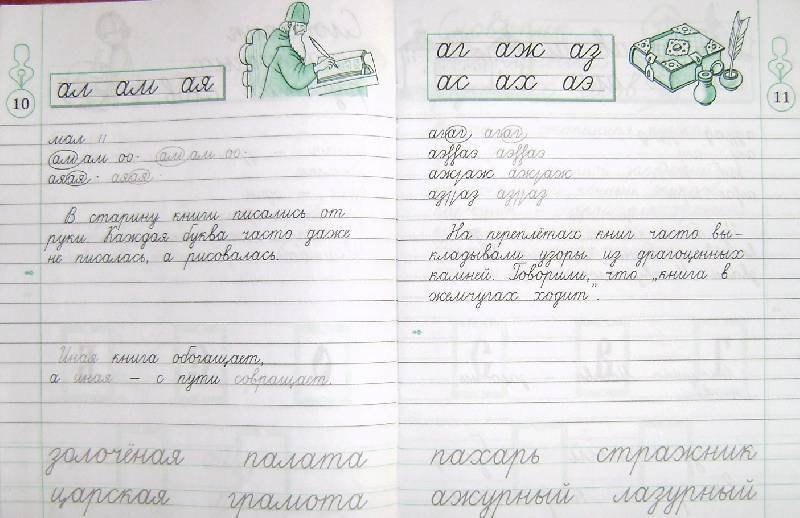 10
ал ам ая
мал
алдам
аяая
В старину книги писались от
руки. Каждая буква часто даже
не писалась, а рисовалась.
Иная книга обогащает,
а иная – с пути совращает.
золочёная палата
царская грамота
аг аж аз
ас ах аэ
11
агаг, агаг,
ажжаж ажжаж
На переплётах книг часто вы-
кладывали узоры из драгоценных
камней. Говорили, что „книга в
жемчугах ходит".
пахарь стражник
ажурный лазурный